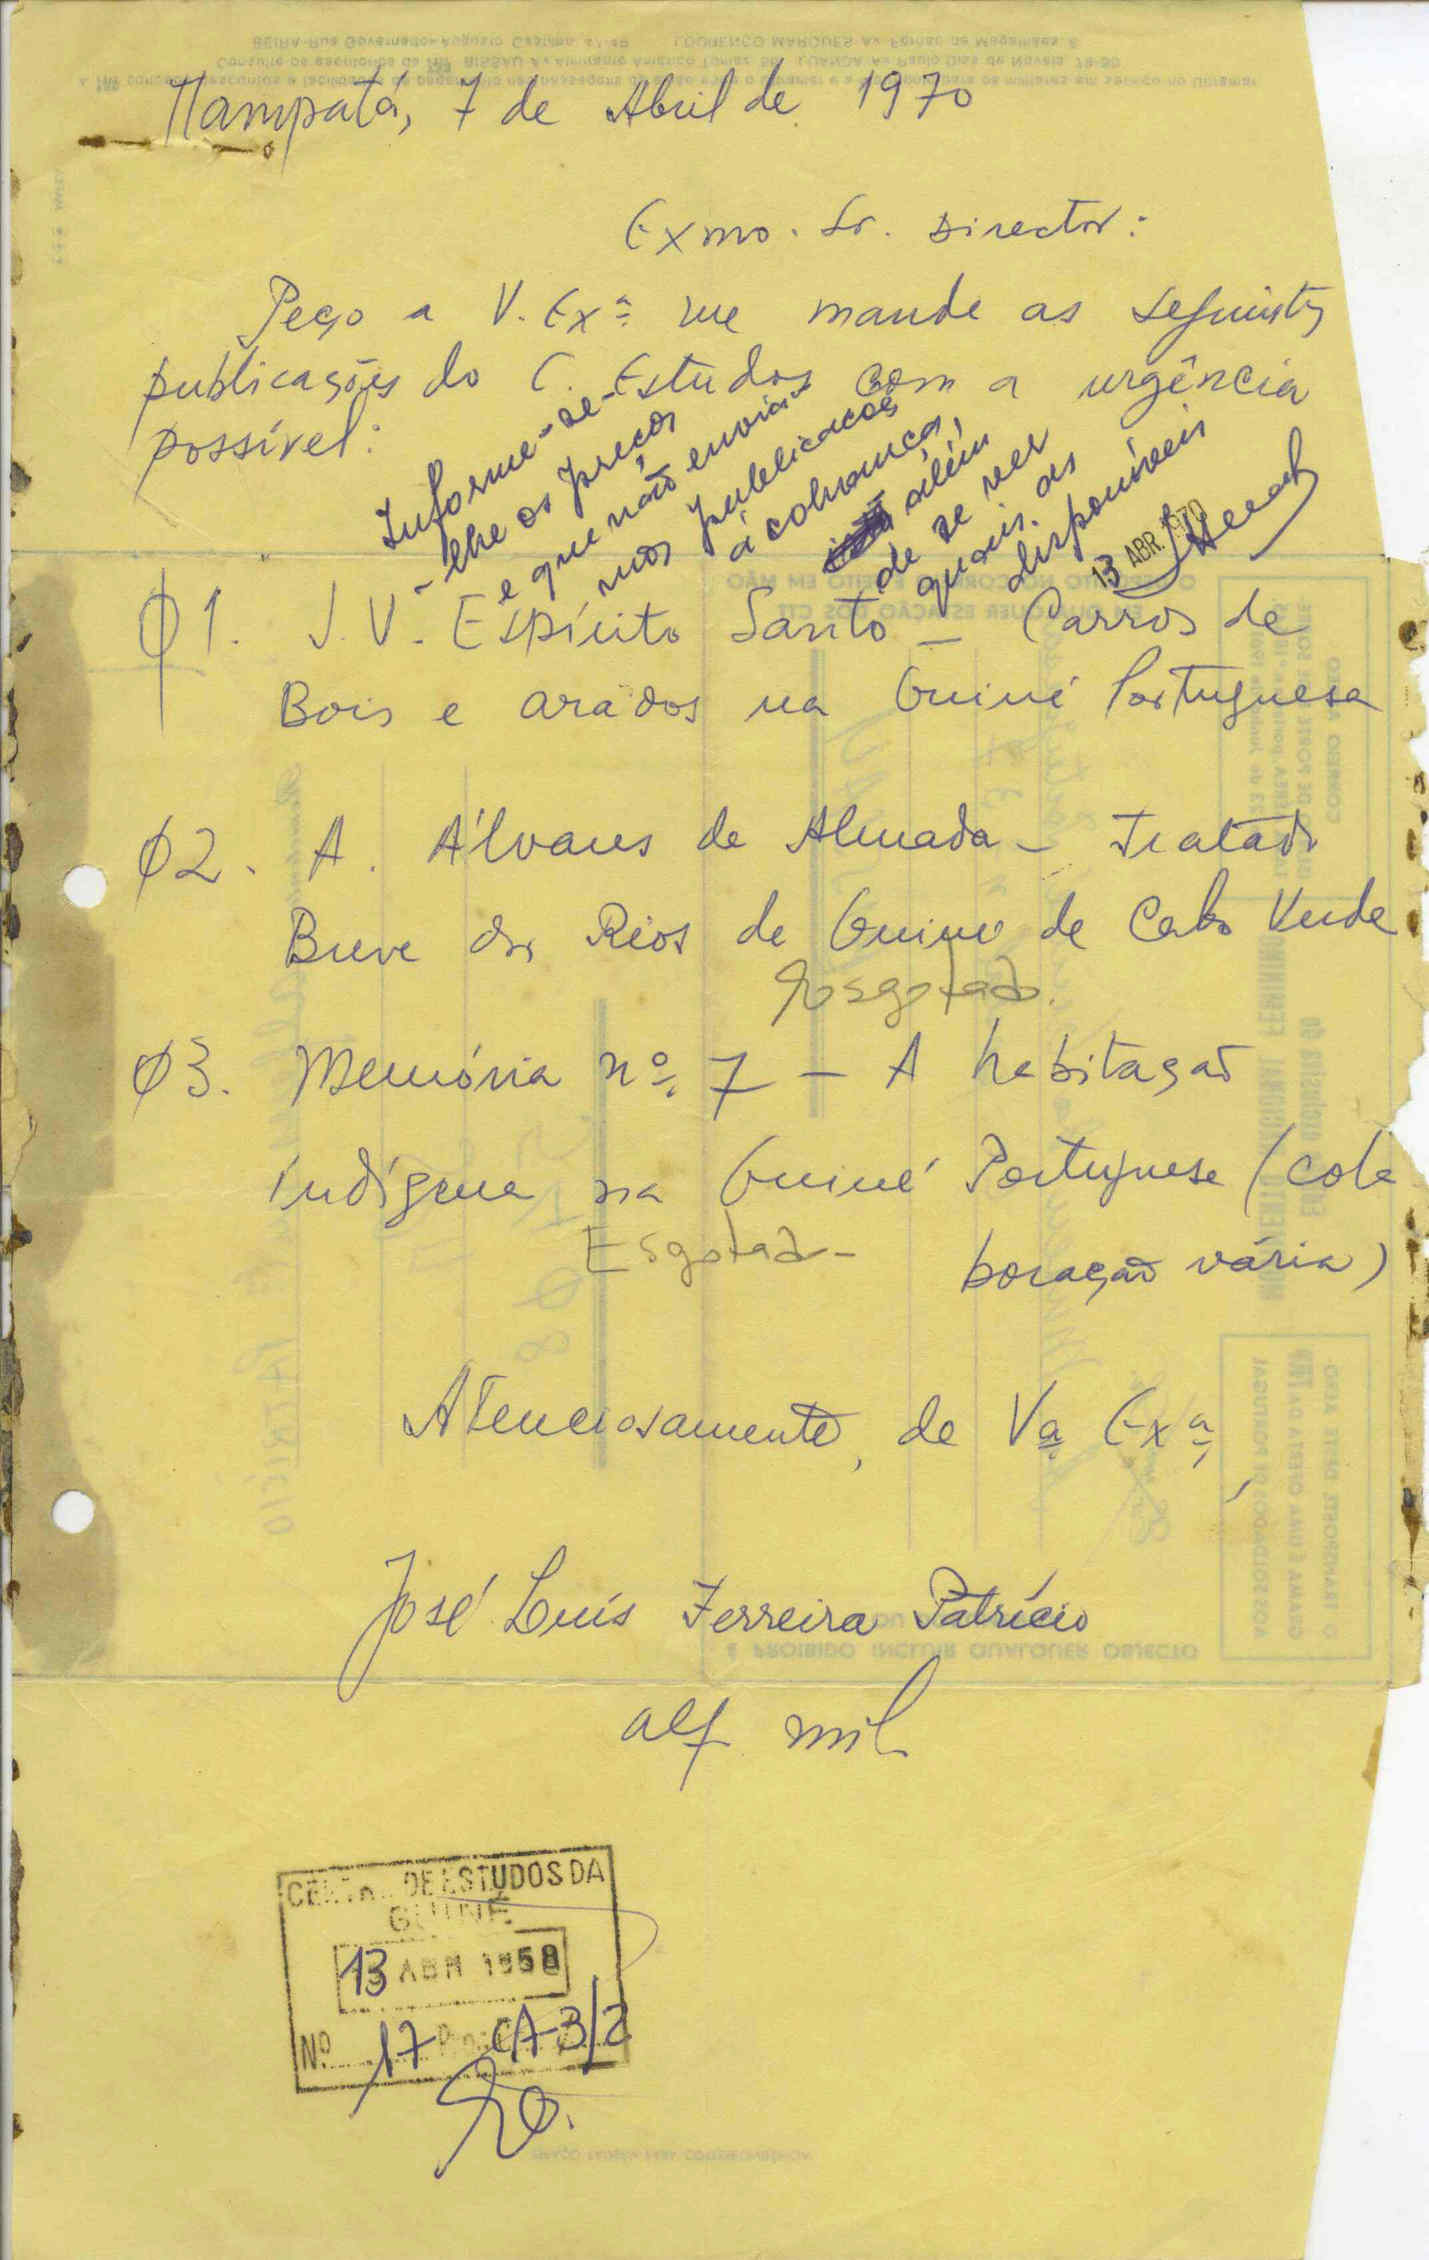 Nampatá, 7 de Abril de 1970
Exmo. Sr. Director:
Peço a V. Exª me mande as seguintes
publicações do C. Estudos com a urgência
possível:
Informe-se-
-lhe os preços
e que não enviamos
nos publicações
à cobrança,
além
de se ver
quais as
disponíveis
13 ABR. 1970
Ø1. J. V. Espírito Santo - Carros de
Bois e arados na Guiné Portuguesa
Ø2. A. Álvares de Almada - Tratado
Breve dos Rios de Guiné de Cabo Verde
Esgotado
Ø3. Memória nº 7 - A habitação
indígena na Guiné Portuguesa (cola
boração vária)
Esgotado -
Atenciosamente, de Vª Exª,
José Luís Ferreira Patrício
alf mil
CENTRO DE ESTUDOS DA
GUINÉ
13 ABR 1958
Nº 17 Proc. CA-3/2